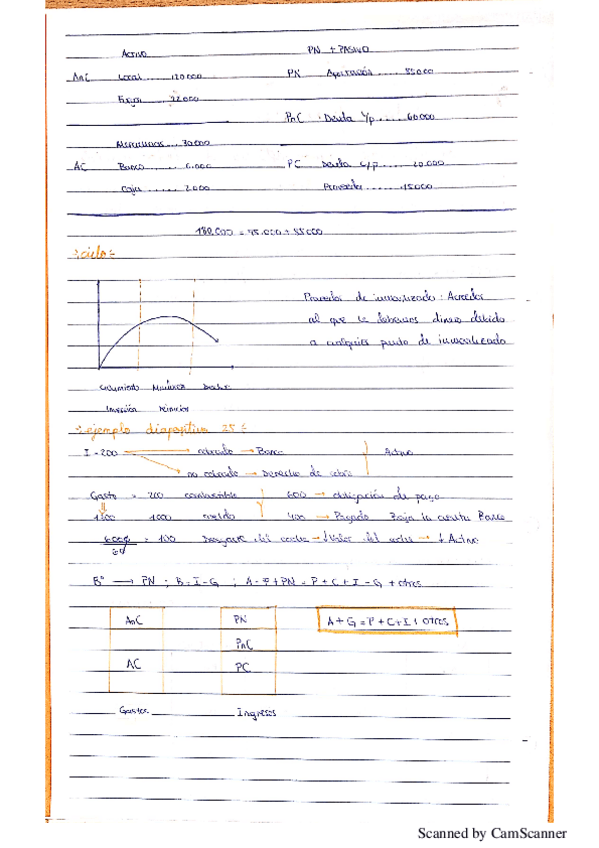 Activo PN + PASIVO
AnC Local ...... 120000 PN Aportación ..... 85000
22000
PnC Deuda l/p ..... 60000
Mercaderías ... 30.000
AC Banco ....... 6.000 PC Deuda c/p ..... 20.000
Caja ...... 2000 Proveedor ....... 15000
180.000 = 95.000 + 85000
ciclo
Proveedor de inmovilizado: Acreedor
al que le debemos dinero debido
a cualquier de inmovilizado
Crecimiento Madurez Declive
Inversión
ejemplo diapositiva 25
I - 200 cobrado → Banco Activo
no cobrado → Derecho de cobro
Gasto = 200 combustible 600 → obligación de pago
1300 1000 sueldo 400 → Pagado Baja la cuenta Banco
6000/60 = 100 Desgaste del coche → ↓ Valor del coche → ↓ Activo
Bº → PN ; B = I - G ; A = P + PN = P + C + I - G + otros
AnC PN A + G = P + C + I + otros
PnC
AC PC
Gastos Ingresos
Scanned by CamScanner